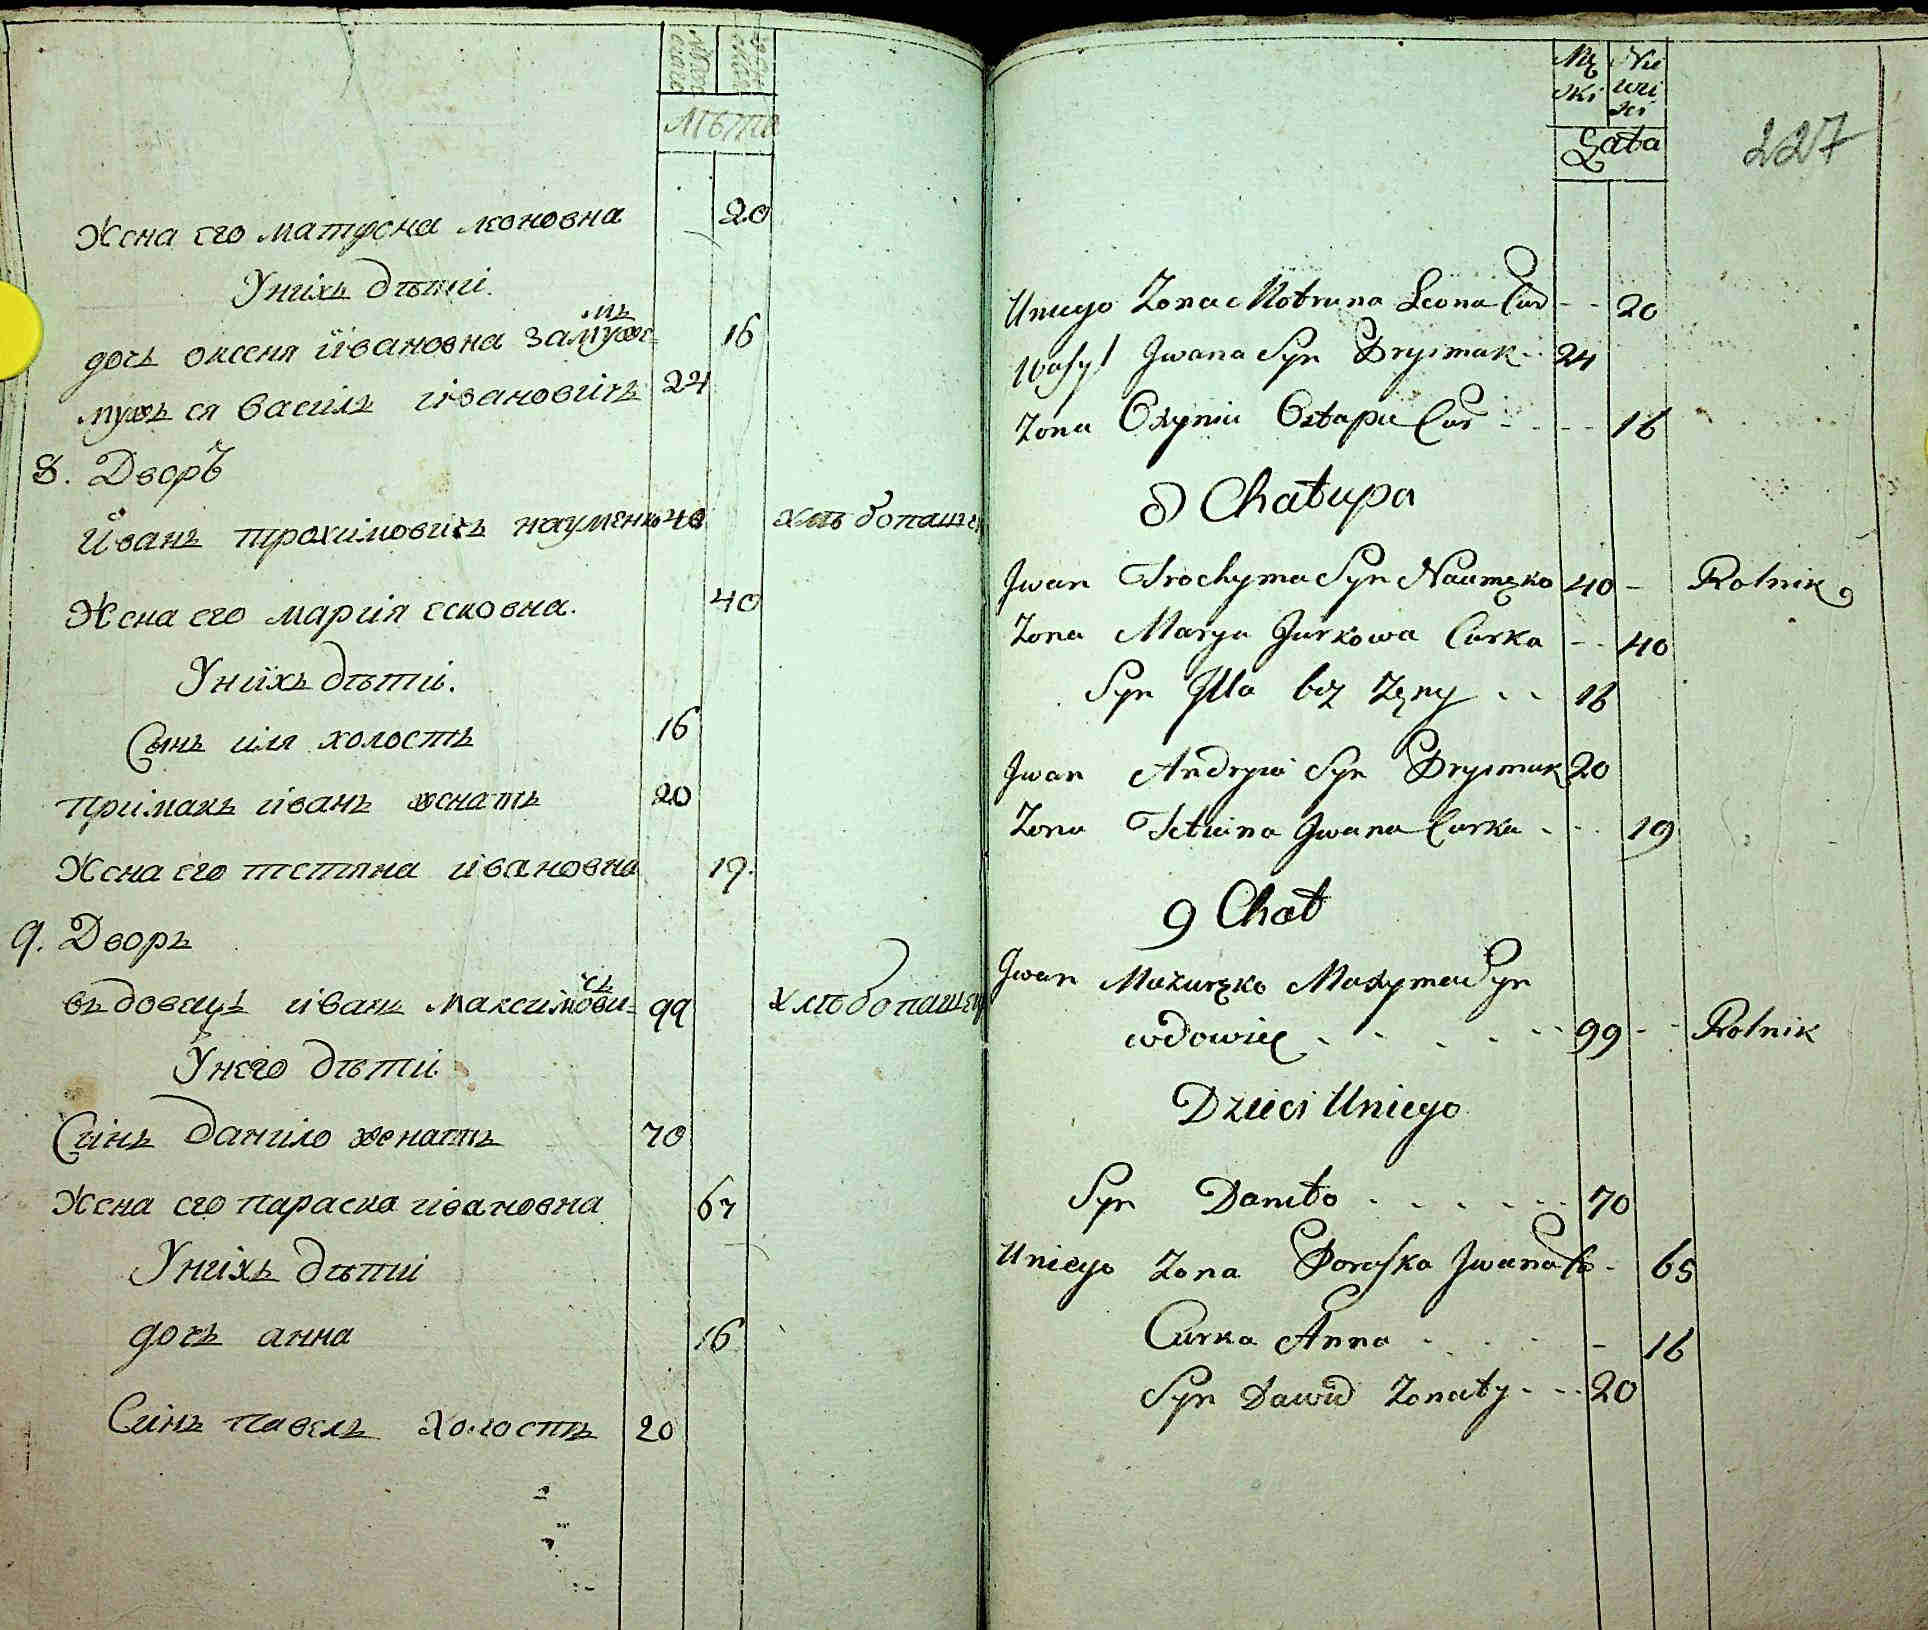 мъжс
ского
жен
ского
лѣта
Жена его матрона леоновна 20
Унихъ дѣтиі
дочь оксеня ивановна замужемъ 16
мужъ ся василь ивановичъ 24
8. Дворъ
иванъ трохимовичъ науменко 40 хлѣбопашец
Жена его мария есковна. 40
Унихъ дѣти.
Сынъ иля холостъ 16
примакъ иванъ женатъ 20
Жена его тетяна ивановна 19.
9. Дворъ
въдовецъ иванъ максимовичъ 99 хлѣбопашец
Унего дѣти
Синъ данило женатъ 70
Жена его параска ивановна 67
Унихъ дѣти
дочъ анна 16
Синъ павелъ холостъ 20
Mę
ski
Nie
wie
ści
Łata
227
Uniego Zona Motruna Leona Cur - - 20
Wasyl Jwana Syn Pryimak - 24
Zona Oxynia Ostapa Cur - - - 16
8 Chałupa
Jwan Trochyma Syn Naumęko 40 - Rolnik
Zona Marya Jurkowa Curka - - 40
Syn Jlla bez Zęny - - 16
Jwan Andryia Syn Pryimak 20
Zona Tetiana Jwana Curka - - - 19
9 Chał
Jwan Mazuręko Maxyma Syn
wdowiec - - - - - 99 - - Rolnik
Dzieci Uniego
Syn Daniło - - - - - - 70
Uniego Zona Paraska Jwana Co - 65
Curka Anna - - - - 16
Syn Dawid Zonaty - - - 20